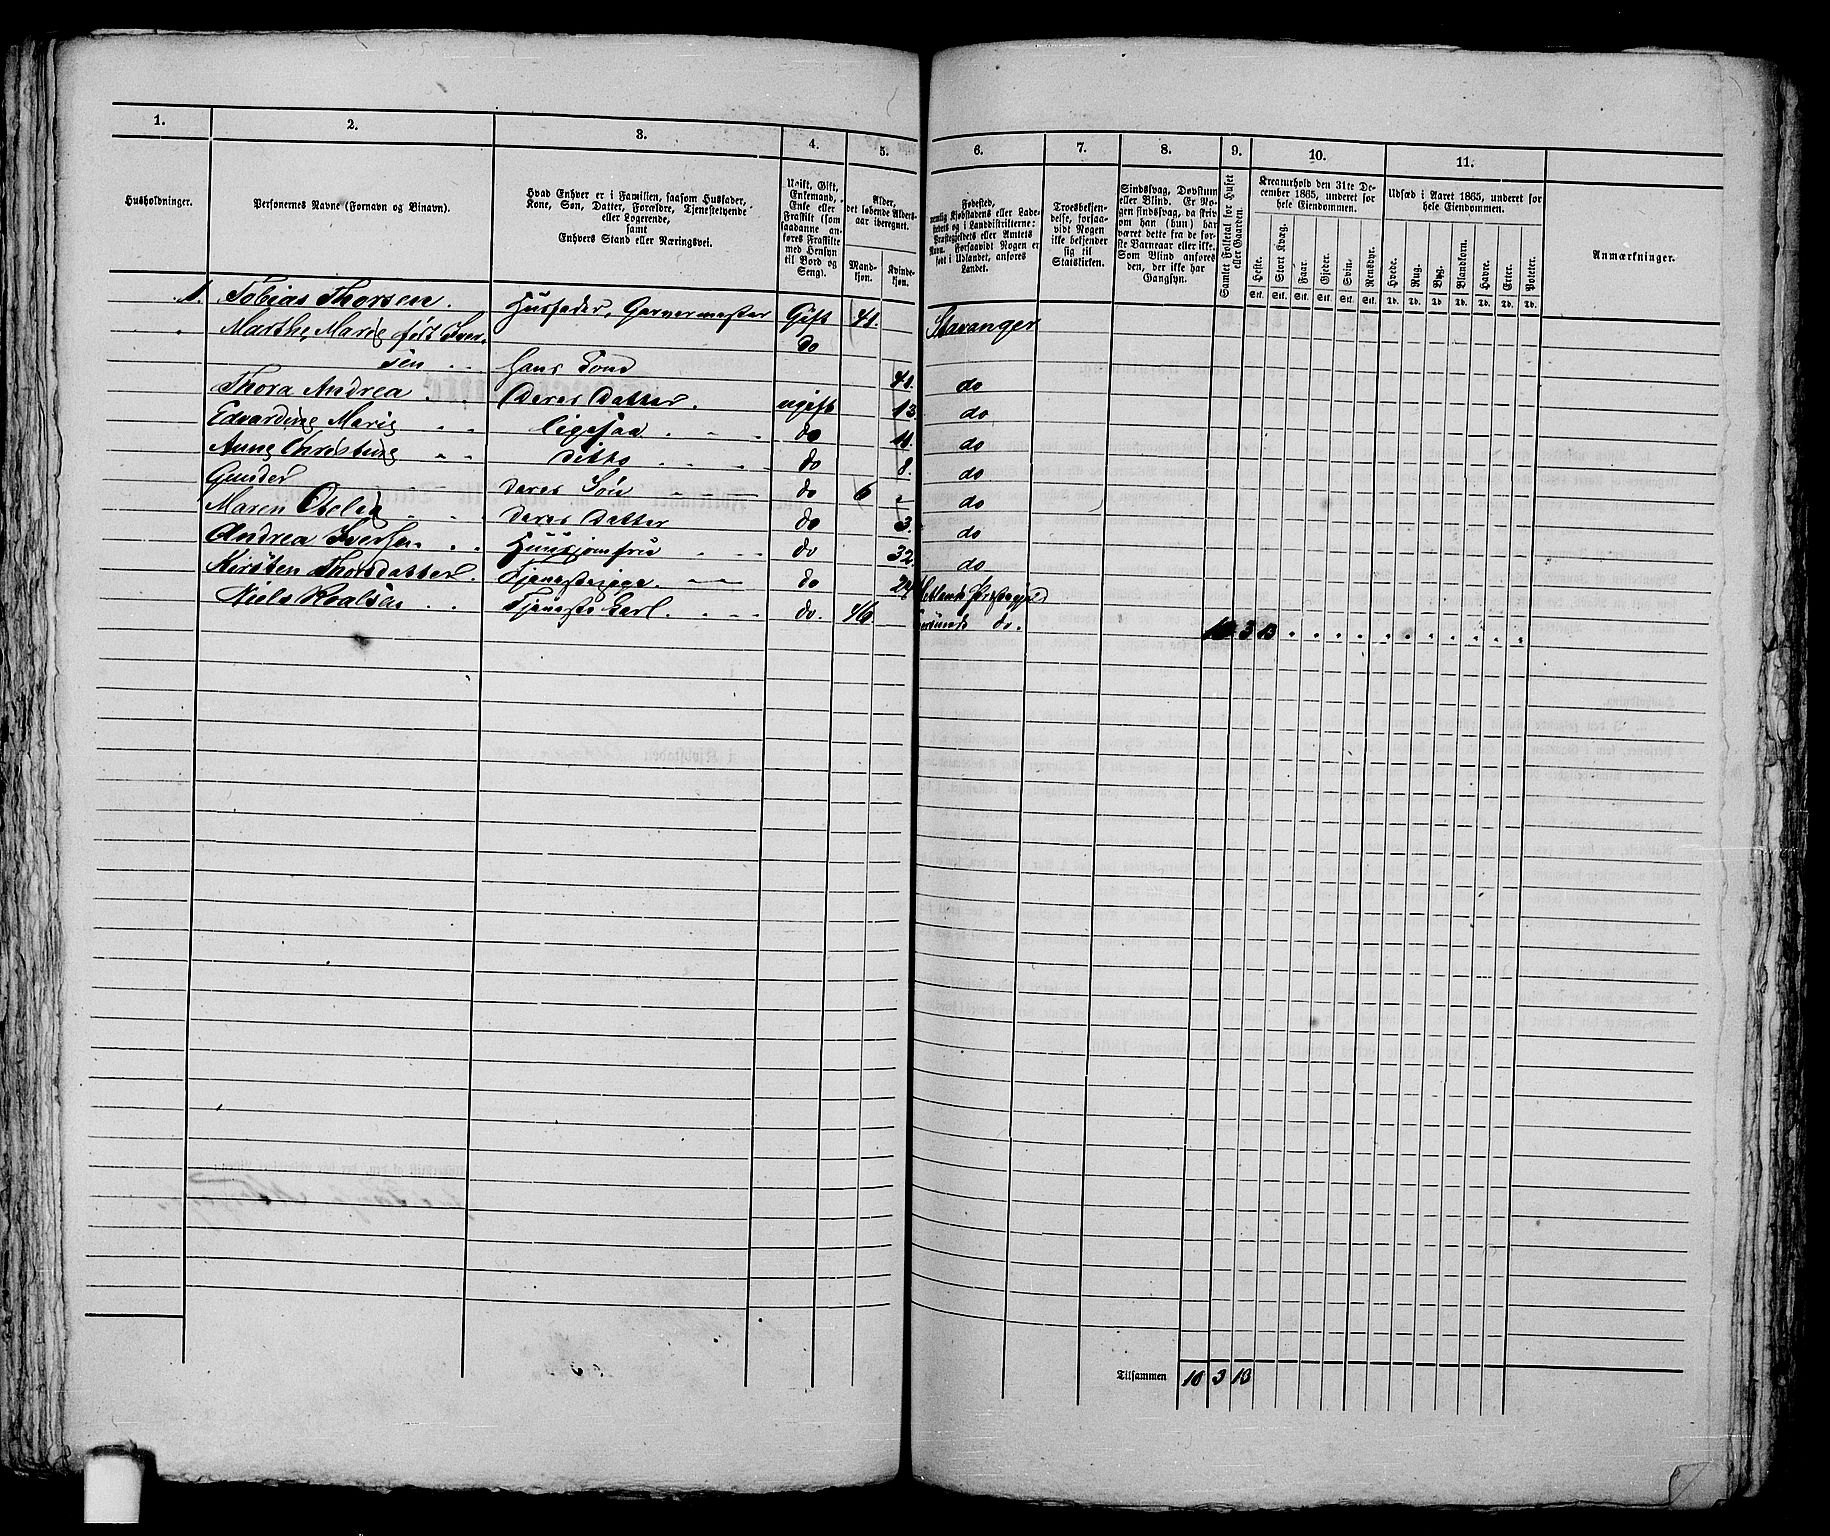 1. 2. 3. 4. 5. 6. 7. 8. 9. 10. 11.
Husholdninger.
Personernes Navne (Fornavn og Binavn).
Hvad Enhver er i Familien, saasom Husfader,
Kone, Søn, Datter, Forældre, Tjenestetyende
eller Logerende,
samt
Enhvers Stand eller Næringsvei.
Ugift, Gift,
Enkemand,
Enke eller
Fraskilt (som
saadanne an-
føres Fraskilte
med Hensyn
til Bord og
Seng).
Alder,
det løbende Alders-
aar iberegnet.
Mand-
kjøn.
Kvinde-
kjøn.
Fødested,
nemlig Kjøbstadens eller Lade-
stedets og i Landdistrikterne:
Præstegjeldets eller Amtets
Navn. Forsaavidt Nogen er
født i Udlandet, anføres
Landet.
Troesbekjen-
delse, forsaa-
vidt Nogen
ikke bekjender
sig til
Statskirken.
Sindssvag, Døvstum
eller Blind. Er No-
gen sindssvag, da skriv
om han (hun) har
været dette fra de før-
ste Barneaar eller ikke.
Som Blind anføres
den, der ikke har
Gangsyn.
Samlet Folketal for Huset
eller Gaarden.
Kreaturhold den 31te De-
cember 1865, underet for
hele Eiendommen.
Heste. Stort Kvæg. Faar. Gjeder. Svin. Rensdyr.
Stk. Stk. Stk. Stk. Stk. Stk.
Udsæd i Aaret 1865, underet for
hele Eiendommen.
Hvede. Rug. Byg. Blandkorn. Havre. Erter. Poteter.
Td. Td. Td. Td. Td. Td. Td.
Anmærkninger.
1. Tobias Thorsen. Husfader, Garvermester Gift 41. Stavanger
Marthe Marie født Iver-
sen hans Kone do 41. do
Thora Andrea Deres Datter. ugift 13 do
Edvardine Marie ligesaa do 11. do
Anne Christine ditto do 8. do
Gunder deres Søn do 6 do
Maren Otelia deres Datter do 3. do
Andrea Iversen Huusjomfru do 32. do
Kirsten Thorsdatter. Tjenestepige. do 24
Niels Roalsen Tjeneste Karl. do. 46 do. 10 3 13
Tilsammen 10 3 13